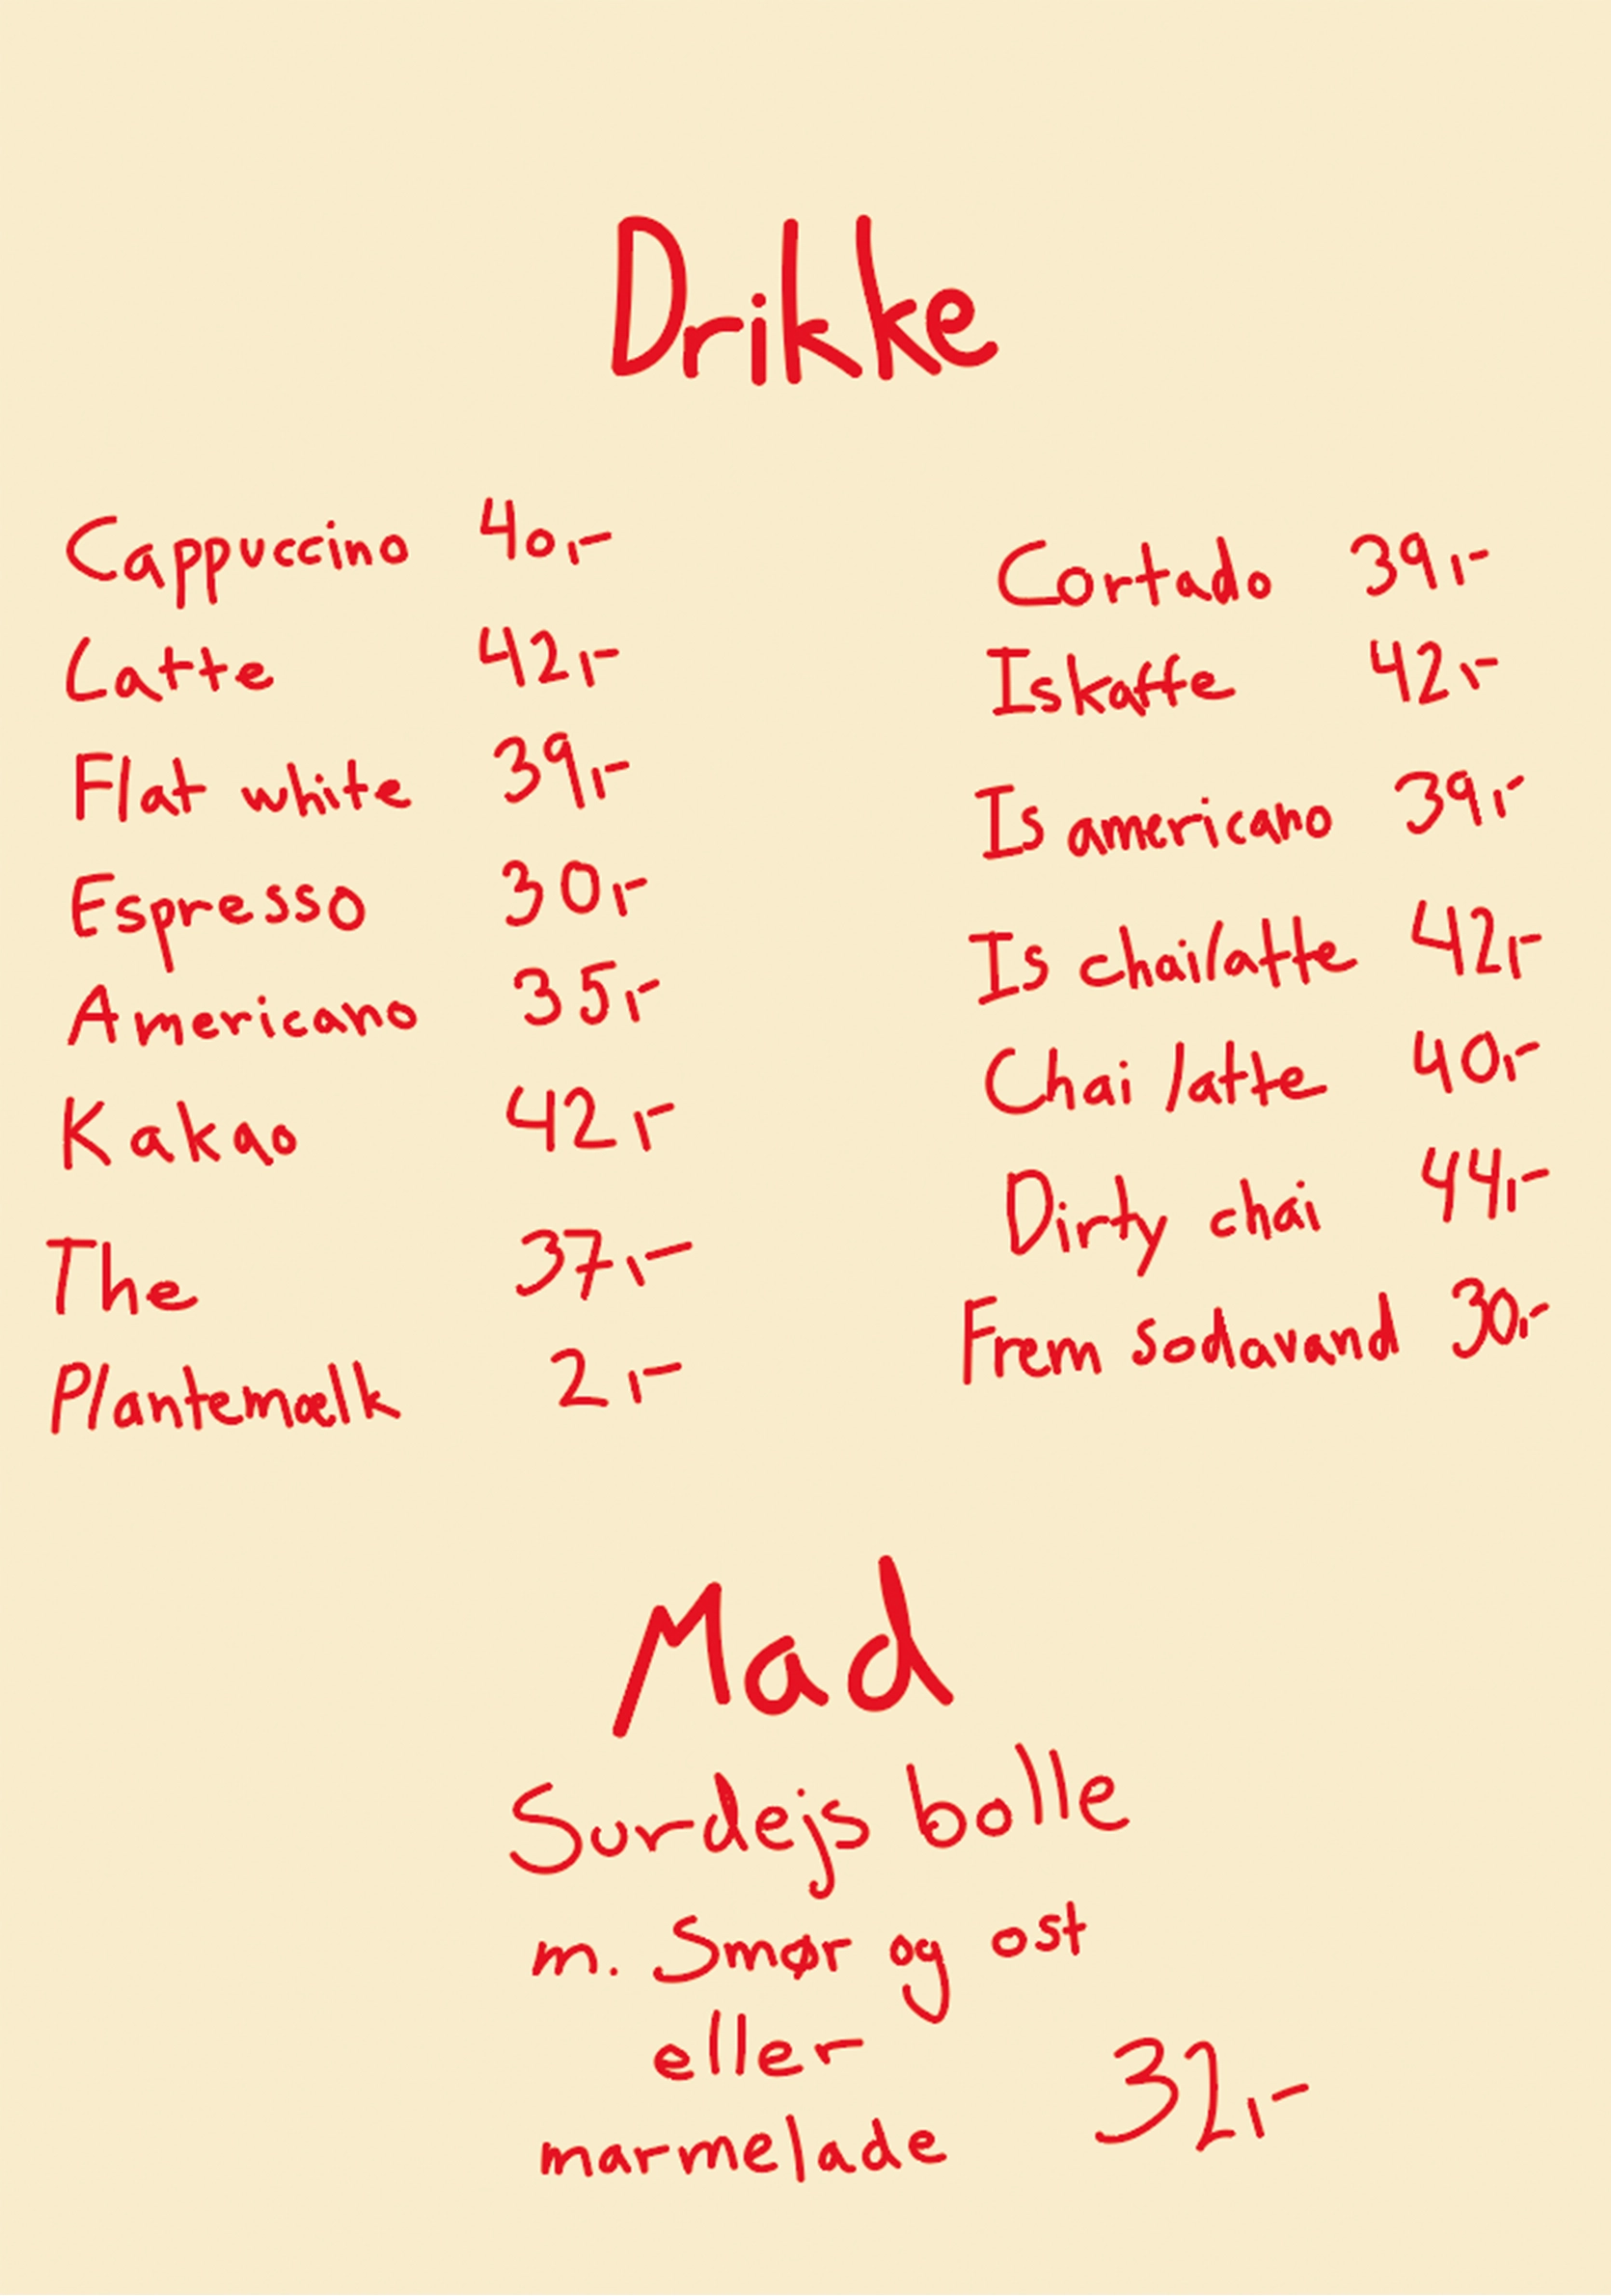 Drikke
Cappuccino 40,-
Latte 42,-
Flat white 39,-
Espresso 30,-
Americano 35,-
Kakao 42,-
The 37,-
Plantemælk 2,-
Cortado 39,-
Iskaffe 42,-
Is americano 39,-
Is chailatte 42,-
Chai latte 40,-
Dirty chai 44,-
Frem sodavand 30,-
Mad
Surdejs bolle
m. Smør og ost
eller
marmelade 32,-